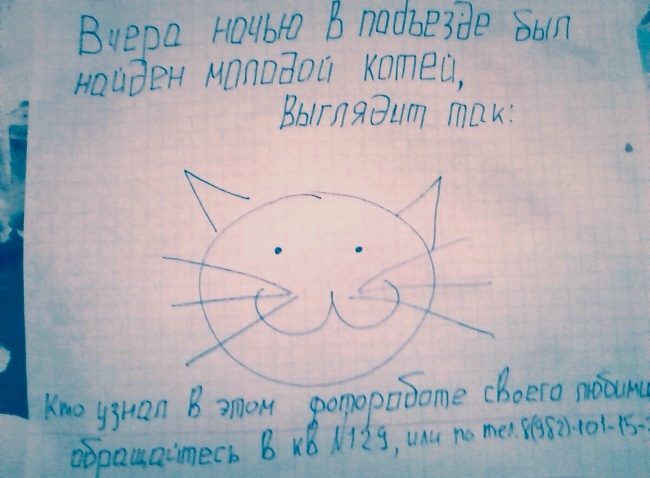 Вчера ночью в подъезде был
найден молодой котей,
Выглядит так:
Кто узнал в этом фотоработе своего любими
обращайтесь в кв №129, или по тел. 8(982)-101-15-